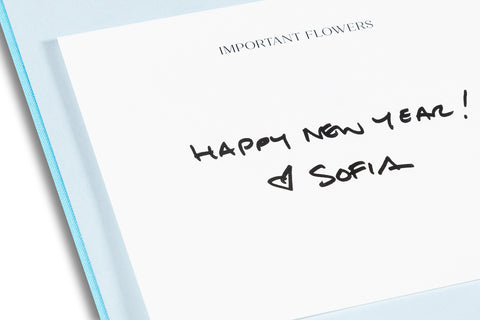 IMPORTANT FLOWERS
HAPPY NEW YEAR!
♥ SOFIA